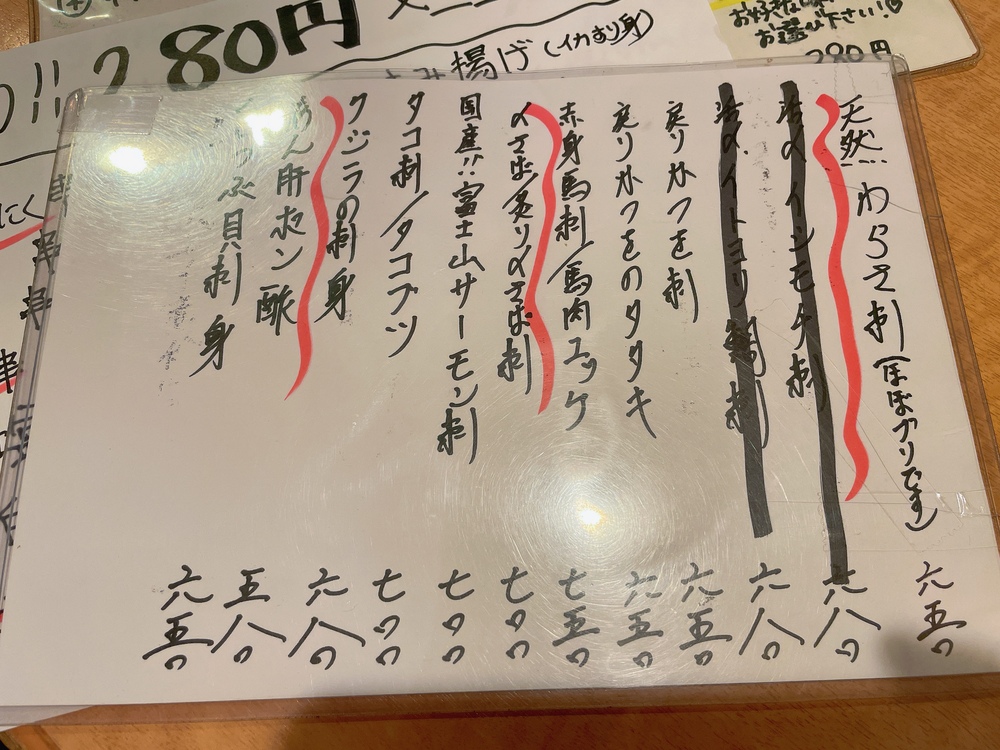 280円
揚げ(イカすり身)
お好きな味
お選び下さい!♡
280円
天然!!わらさ刺(ほぼブリです) 六五〇
活〆イシモチ刺 六八〇
活〆イトヨリ鯛刺 六八〇
戻りかつを刺 六五〇
戻りかつをのタタキ 六五〇
赤身馬刺/馬肉ユッケ 七五〇
〆さば/炙り〆さば刺 七〇〇
国産!!富士山サーモン刺 七〇〇
タコ刺/タコブツ 七〇〇
クジラの刺身 六八〇
あん肝ポン酢 五八〇
つぶ貝刺身 六五〇
にく
串
串
串